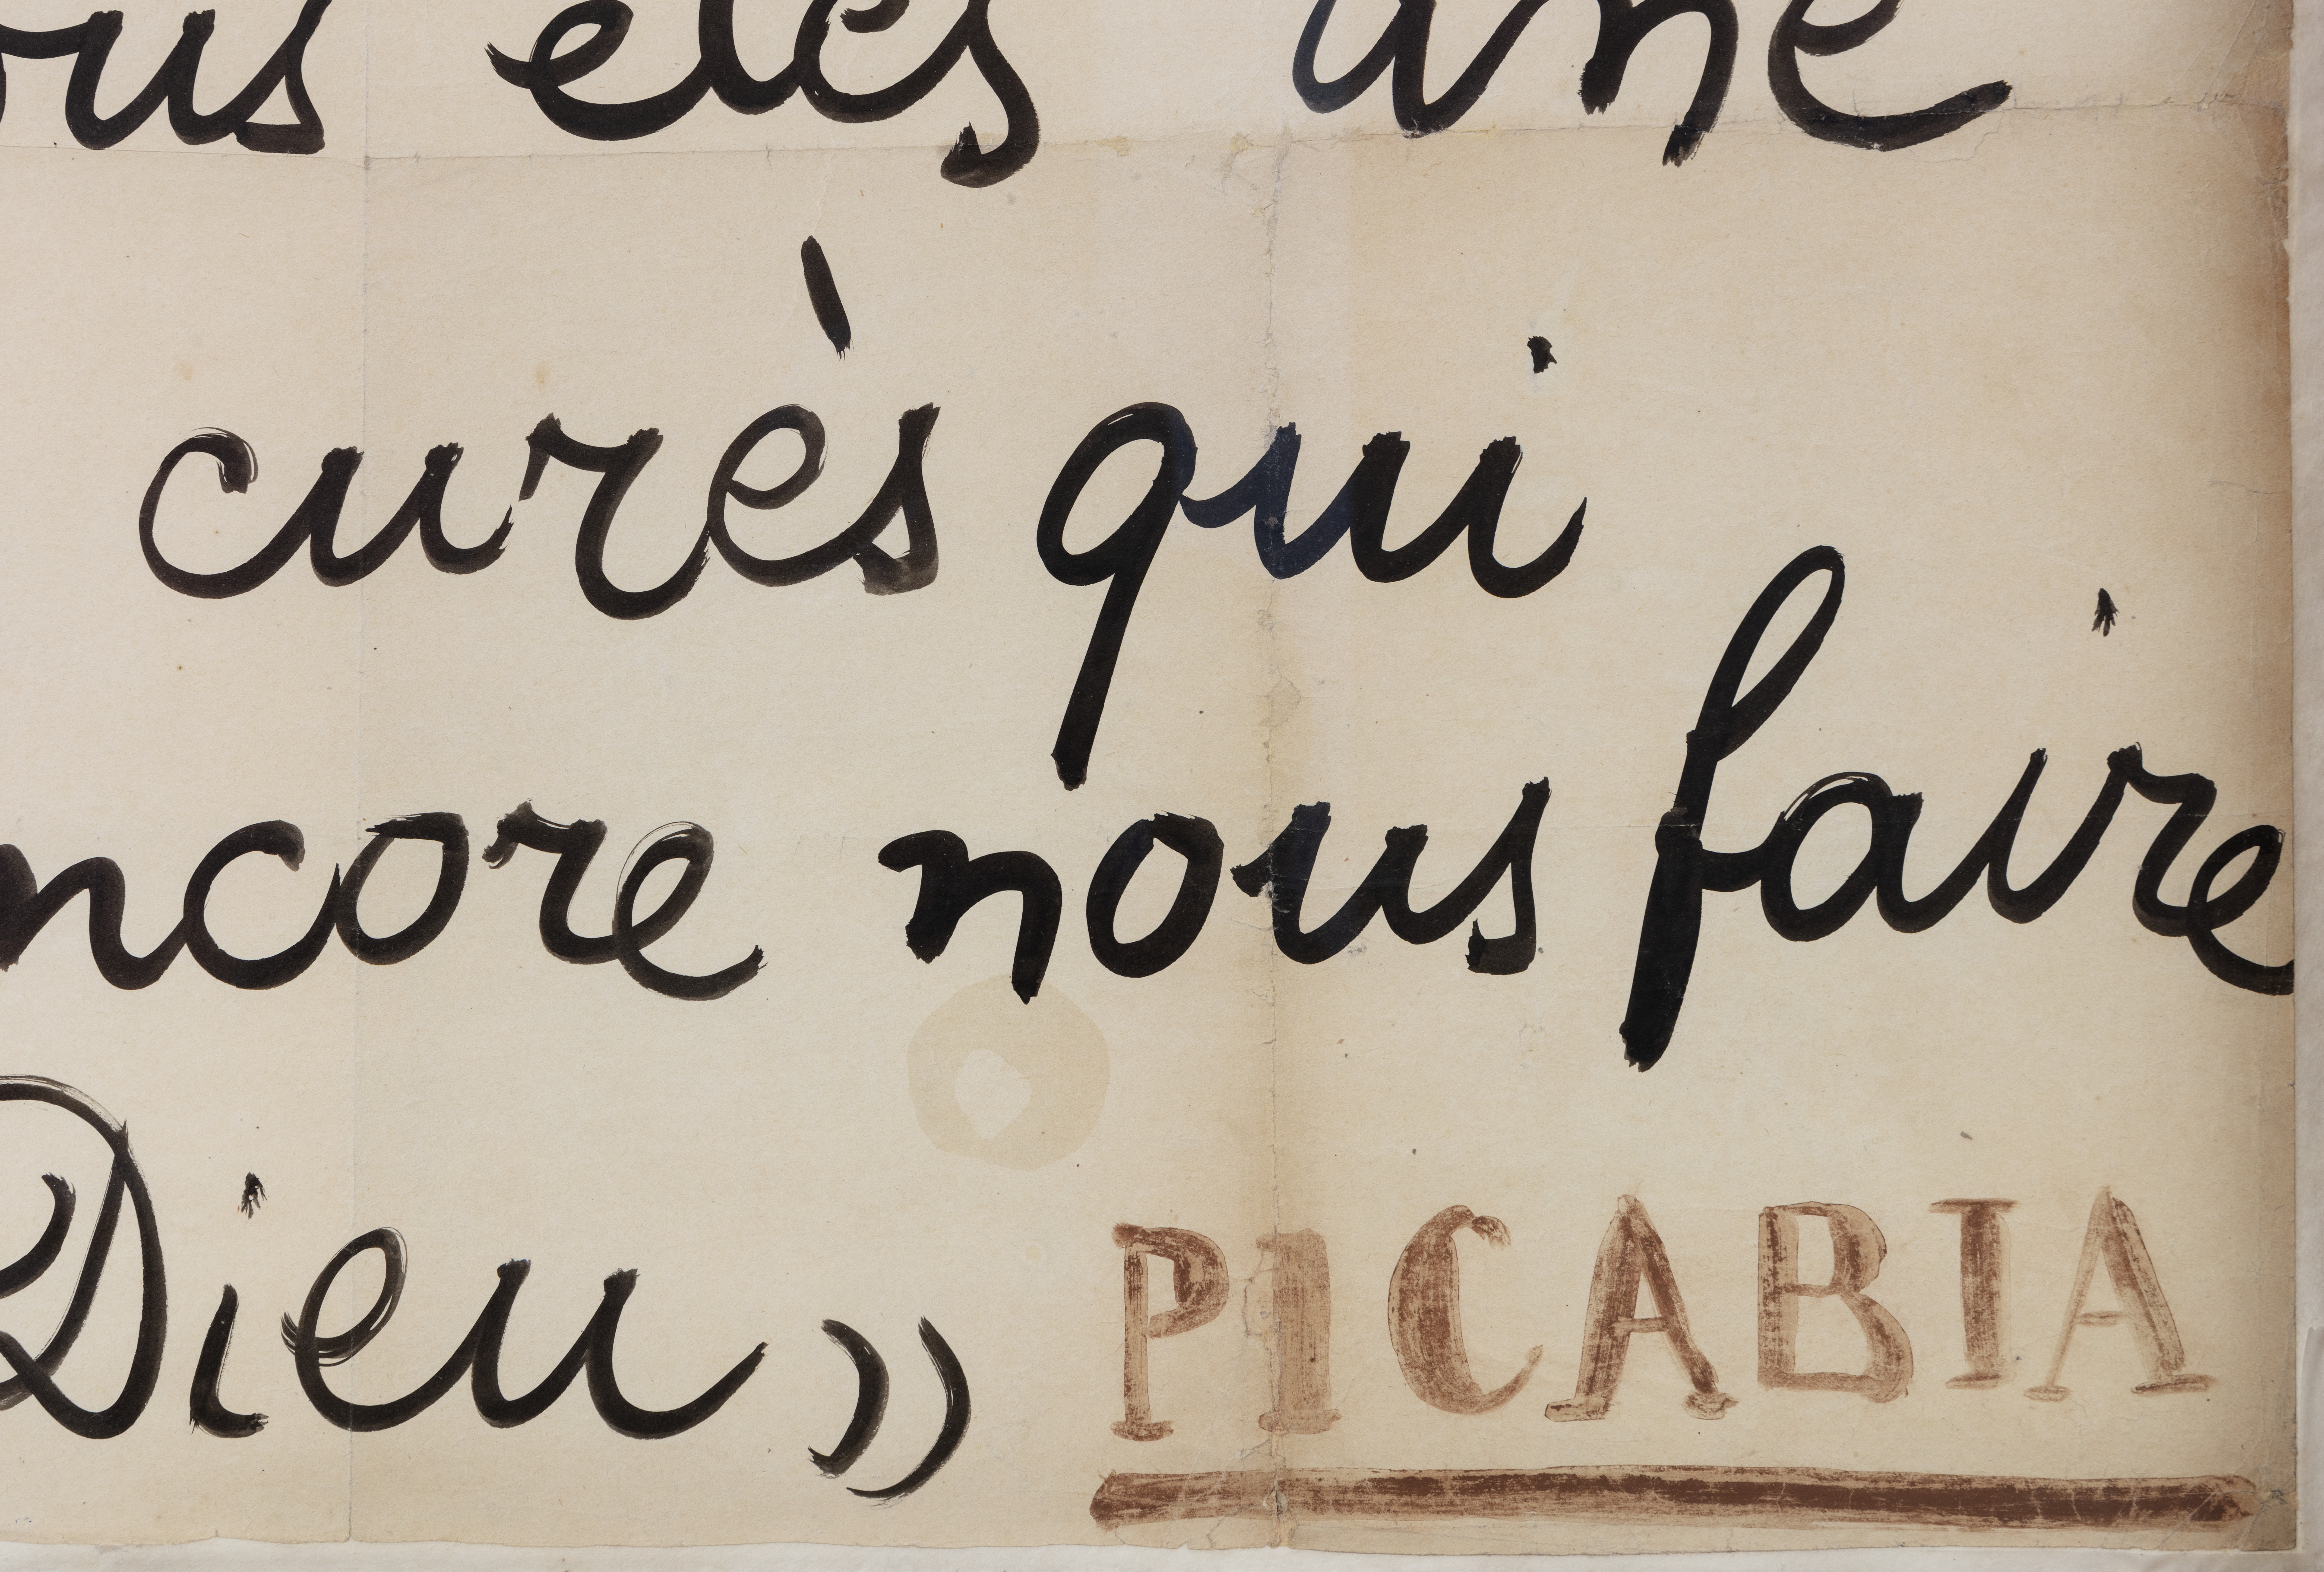 ous etes une
curès qui
ncore nous faire
Dieu » PICABIA